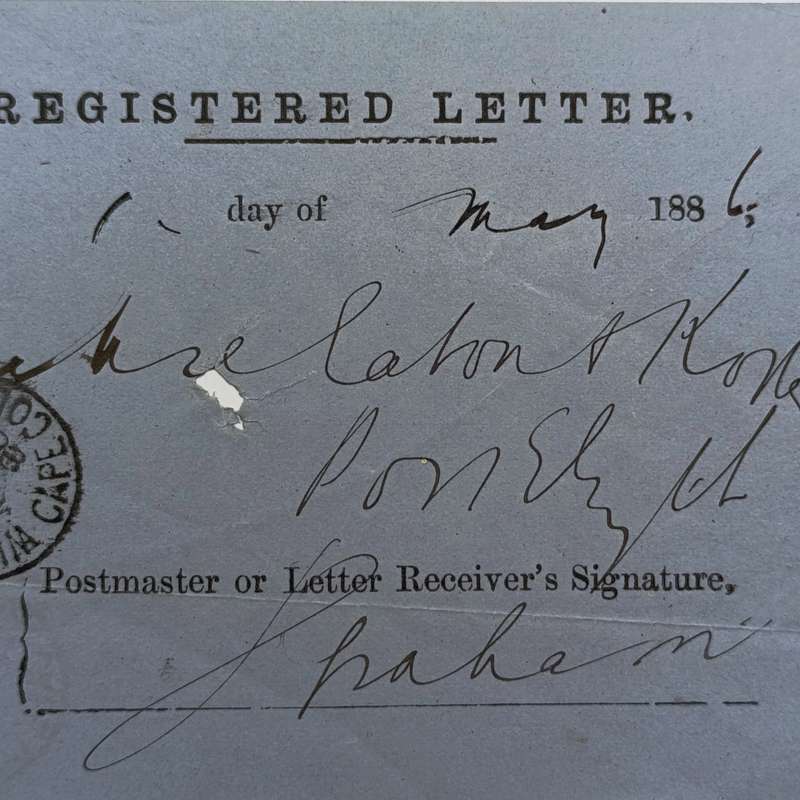 REGISTERED LETTER.
1. day of May 1886;
Caton &
Port Elizth
CAPE COL
Postmaster or Letter Receiver's Signature,
Graham